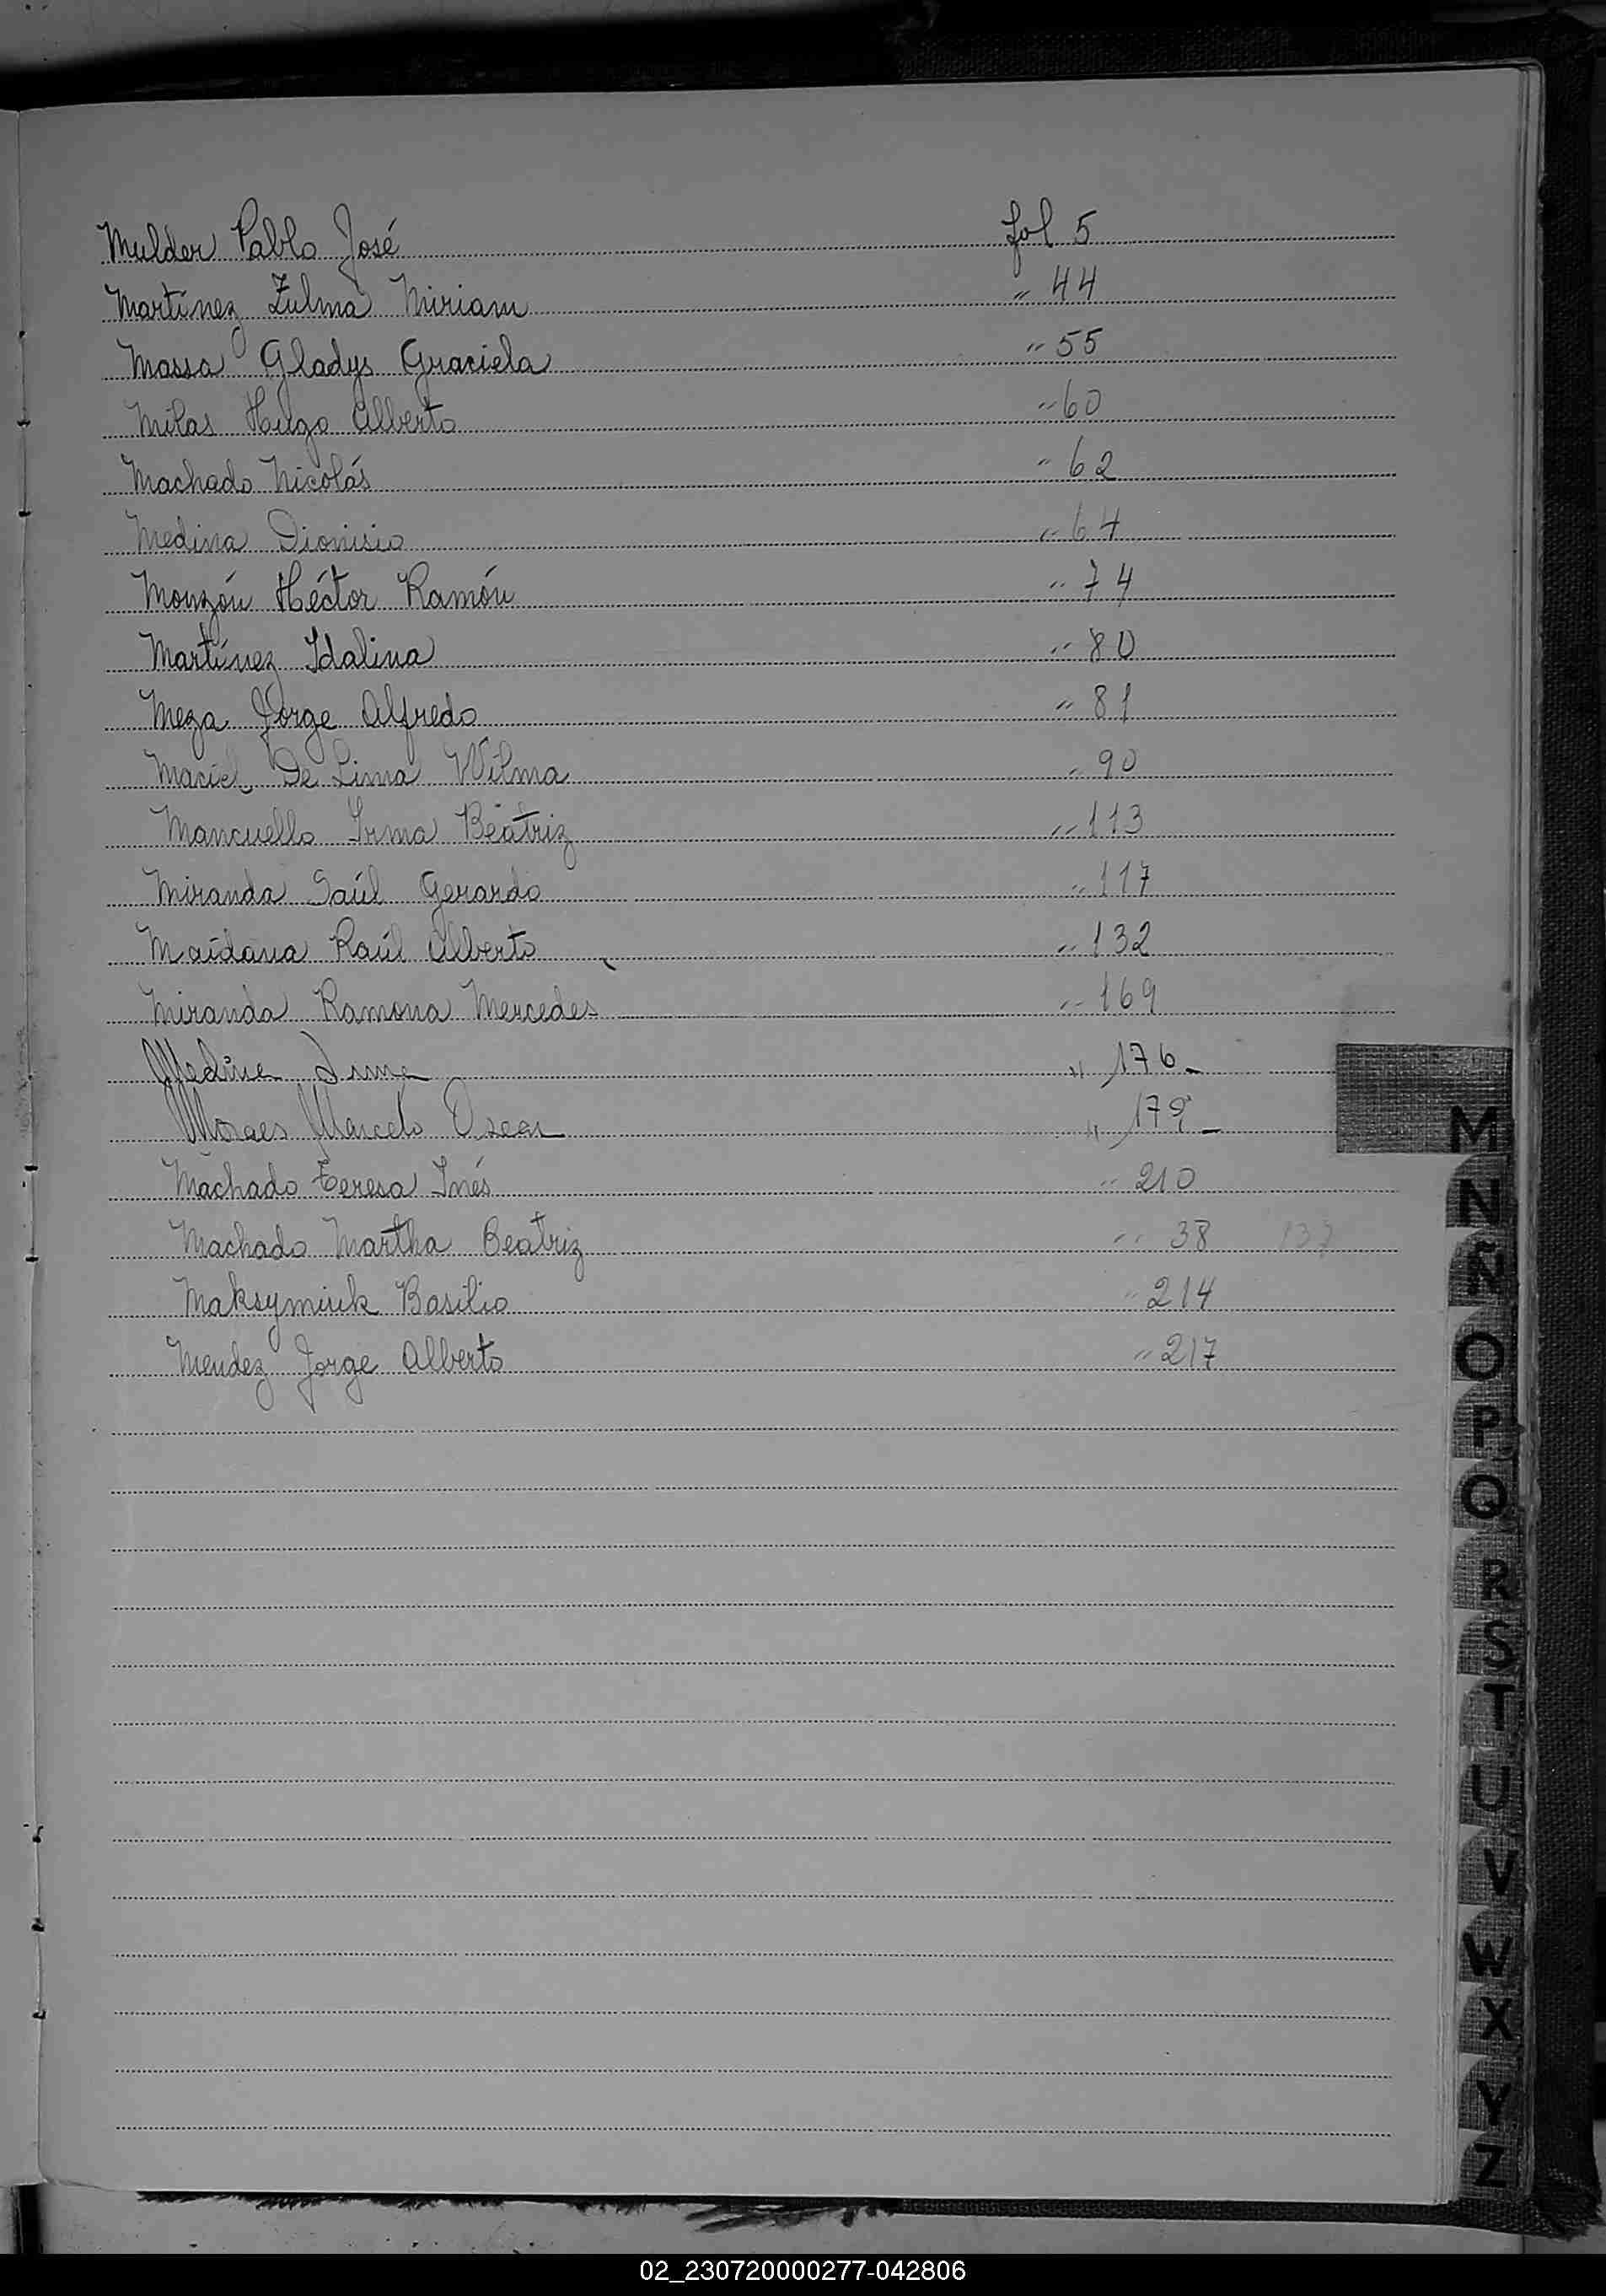 Mulder Pablo José fol 5
Martínez Zulma Miriam " 44
Massa Gladys Graciela " 55
Milas Hugo Alberto " 60
Machado Nicolás " 62
Medina Dionisio " 64
Monzón Héctor Ramón " 74
Martínez Idalina " 80
Meza Jorge Alfredo " 81
Maciel De Lima Wilma " 90
Mancuello Irma Beatriz " 113
Miranda Saúl Gerardo " 117
Maidana Raúl Alberto " 132
Miranda Ramona Mercedes " 169
Medina Irma " 176_
Moraes Marcelo Oscar " 179_
Machado Teresa Inés " 210
Machado Martha Beatriz " 38
Maksymiuk Basilio " 214
Mendez Jorge Alberto " 217
M
N
Ñ
O
P
Q
R
S
T
U
V
W
X
Y
Z
02_230720000277-042806